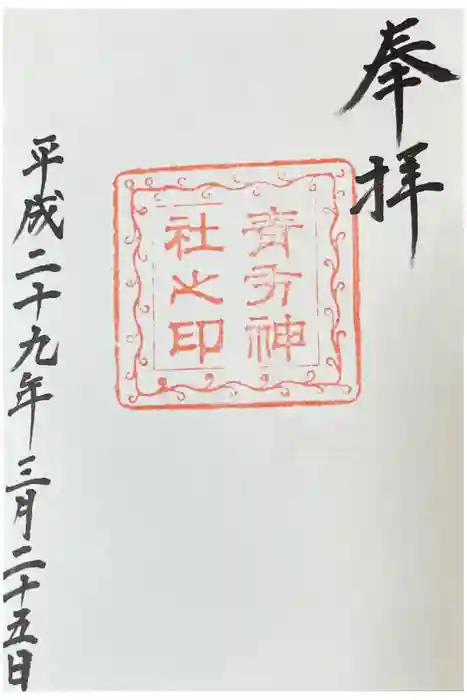 奉拝
青方神
社之印
平成二十九年三月二十五日